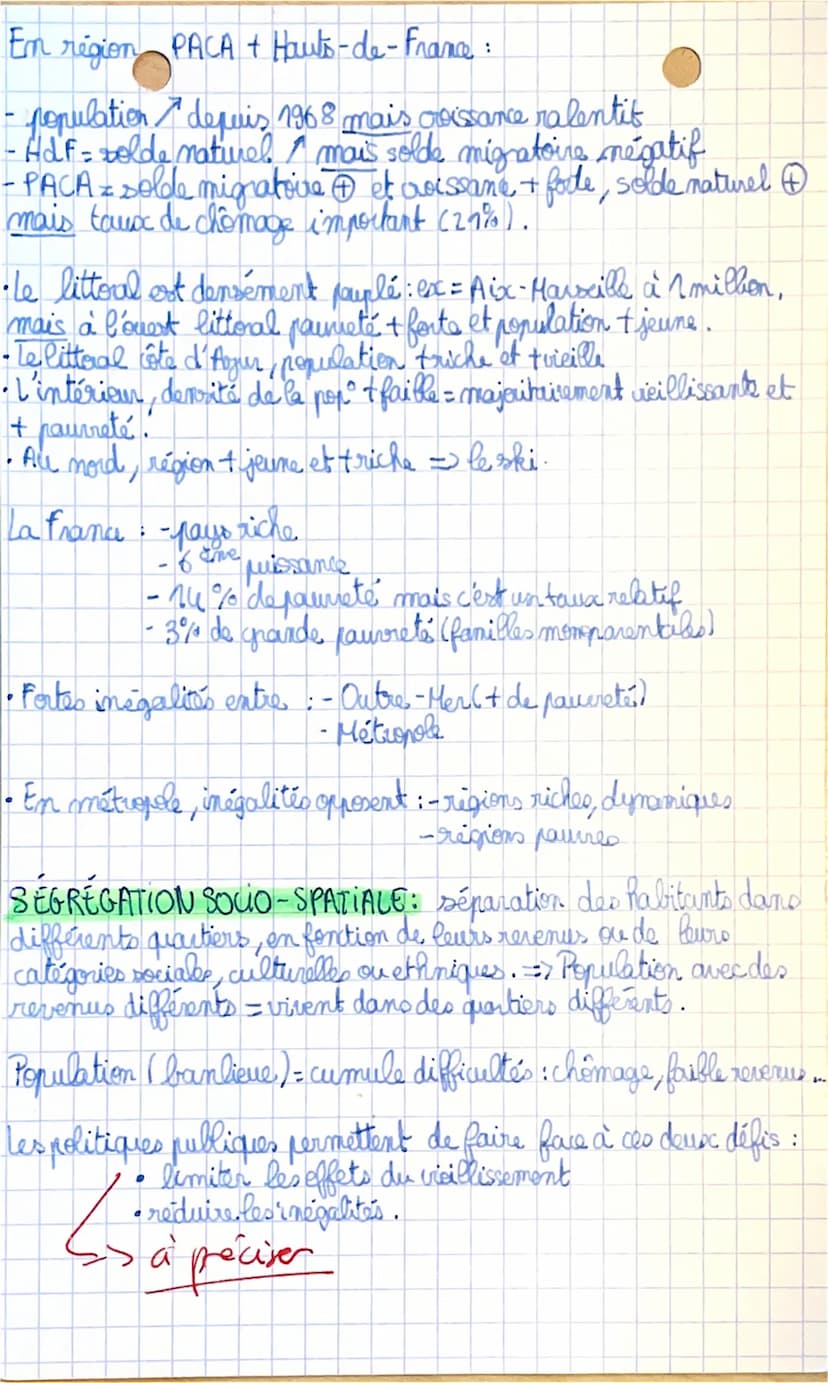 En région PACA + Hauts-de-France :
- population ↗ depuis 1968 mais croissance ralentit
- HdF = solde naturel ↗ mais solde migratoire négatif
- PACA = solde migratoire ⊕ et croissane + forte, solde naturel ⊕
mais taux de chômage important (21%).
• Le littoral est densément peuplé : ex = Aix-Marseille à 1 million,
mais à l'ouest littoral pauvreté + forte et population + jeune.
• Le littoral Côte d'Azur, population + riche et + vieille
• L'intérieur, densité de la pop° + faible = majoritairement vieillissante et
+ pauvreté.
• Au nord, région + jeune et + riche => le ski.
La France : - pays riche
- 6ème puissance
- 14% de pauvreté mais c'est un taux relatif
- 3% de grande pauvreté (familles monoparentales)
• Fortes inégalités entre : - Outre-Mer (+ de pauvreté)
- Métropole
• En métropole, inégalités opposent : - régions riches, dynamiques
- régions pauvres
SÉGRÉGATION SOCIO-SPATIALE : séparation des habitants dans
différents quartiers, en fonction de leurs revenus ou de leurs
catégories sociales, culturelles ou ethniques. => Population avec des
revenus différents = vivent dans des quartiers différents.
Population (banlieue) = cumule difficultés : chômage, faible revenus...
Les politiques publiques permettent de faire face à ces deux défis :
• limiter les effets du vieillissement
• réduire les inégalités.
↳> à préciser